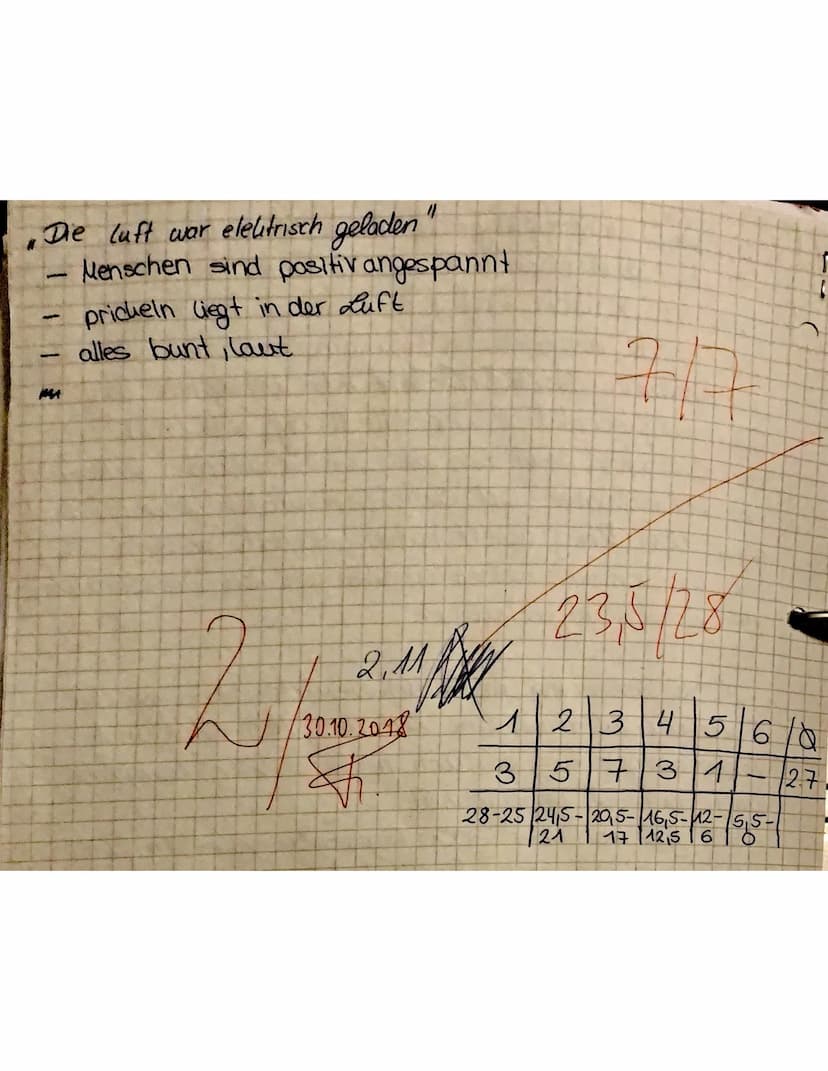 „Die Luft war elektrisch geladen"
– Menschen sind positiv angespannt
– prickeln liegt in der Luft
– alles bunt, laut
7/7
23,5/28
2/
2.11
30.10.2018
1 | 2 | 3 | 4 | 5 | 6 | Ø
3 | 5 | 7 | 3 | 1 | – | 2.7
28-25 | 24,5-21 | 20,5-17 | 16,5-12,5 | 12-6 | 5,5-0